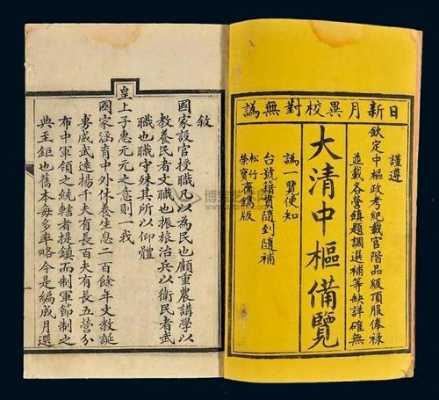 日新月異校對無訛
謹遵
欽定中樞政考紀載官階品級頂服俸祿
並載各營鎮題調選補等缺詳確無
大清中樞備覽
訛一覽便知
台號籍貫隨到隨補
松竹
榮寶齋鐫版
敘
國家設官授職凡以為民也顧重農講學以
教養民者文職也振旅治兵以衛民者武
職也守殊其所以仰體
皇
上子惠元元之意則一我
國家涵育中外休養生息二百餘年文教誕
威武遠揚千夫有長百夫有長五營分
布中軍領之統轄者提鎮而制軍節制之
典至鉅也舊本每多率略今是編月選